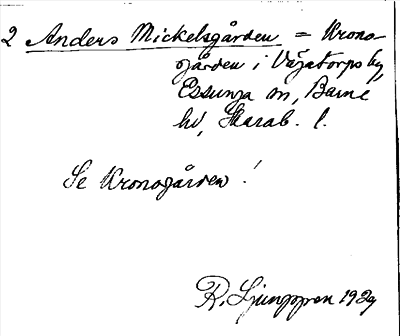 2 Anders Mickelsgården = Krono-
gården i Vässtorps by,
Essunga sn, Barne
hd, Skarab. l.
Se Kronogården!
R. Ljunggren 1929